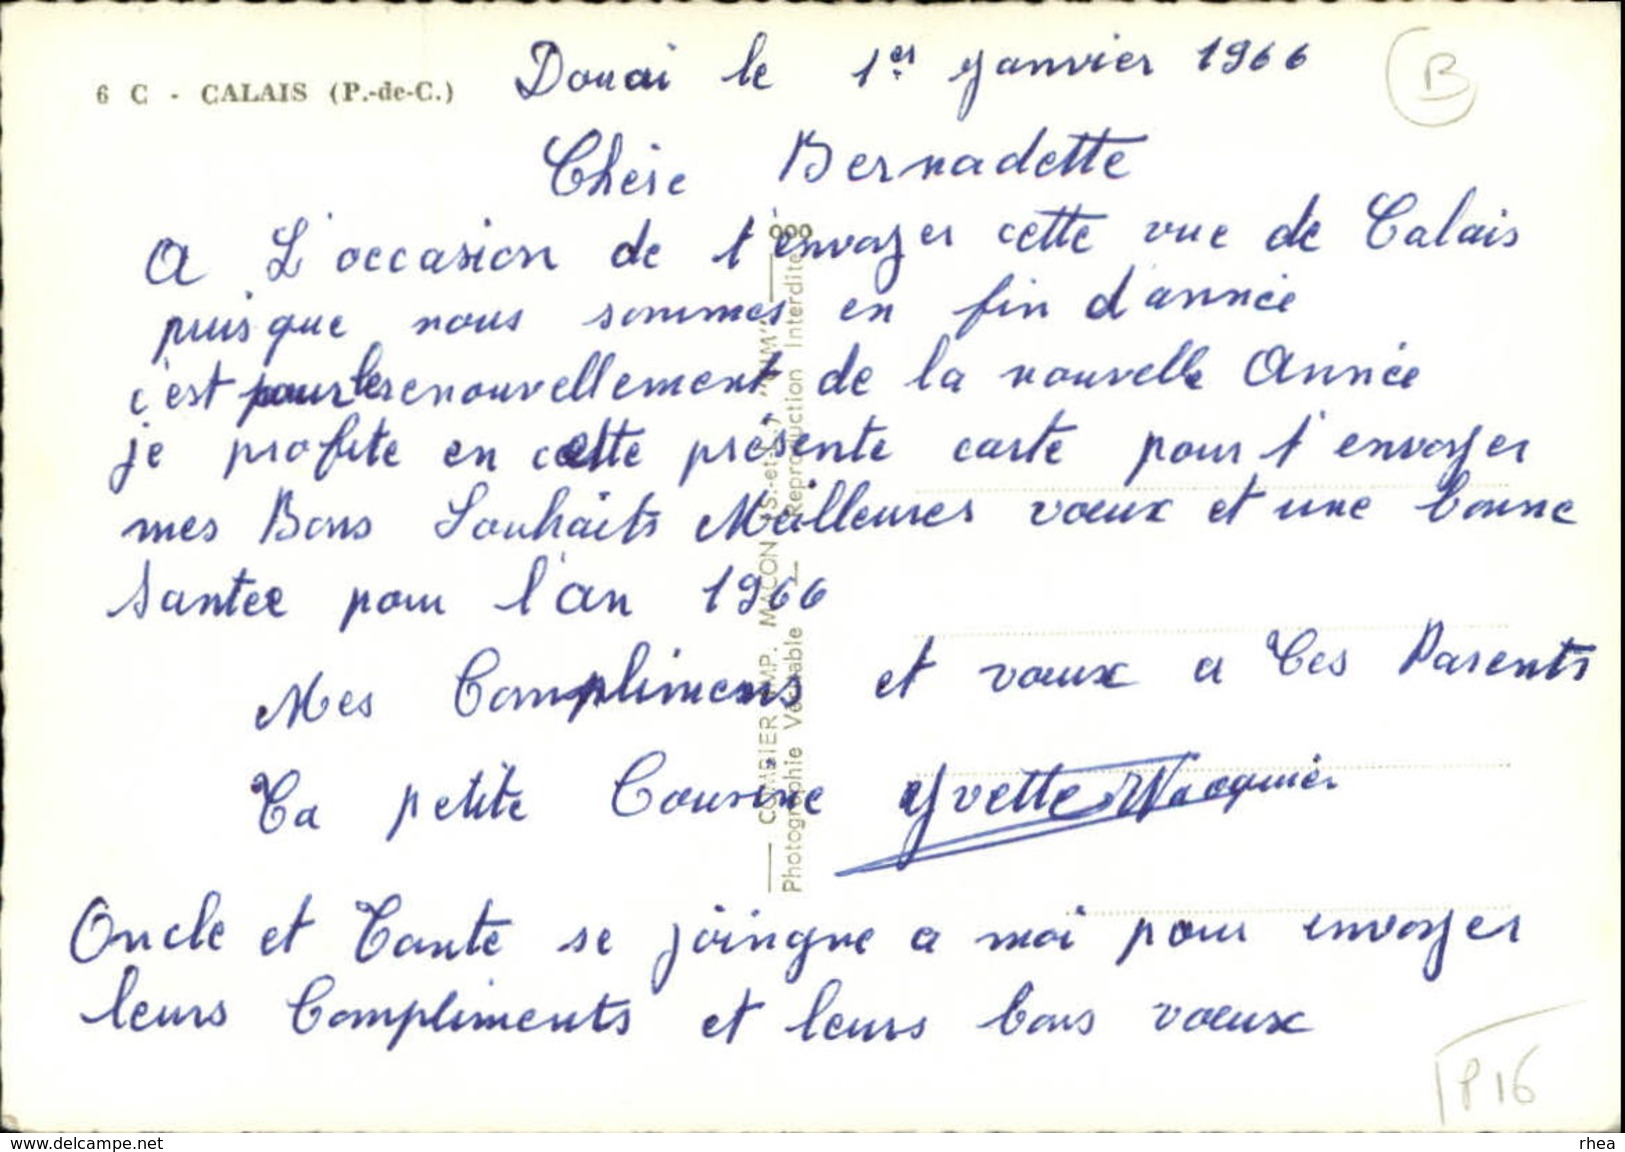 6 C - CALAIS (P.-de-C.)
Douai le 1er janvier 1966
B
Chère Bernadette
A L'occasion de t'envoyer cette vue de Calais
puisque nous sommes en fin d'année
c'est pour le renouvellement de la nouvelle Année
je profite en cette présente carte pour t'envoyer
mes Bons Souhaits Meilleures voeux et une bonne
santée pour l'an 1966
Mes Complimens et voeux a Tes Parents
Ta petite Cousine Yvette Wacquier
Oncle et Tante se joingne a moi pour envoyer
leurs Compliments et leurs bons voeux
COMBIER IMP. MACON (S.-et-L.) "CIM"
Photographie Véritable - Reproduction Interdite
P16
www.delcampe.net
rhea